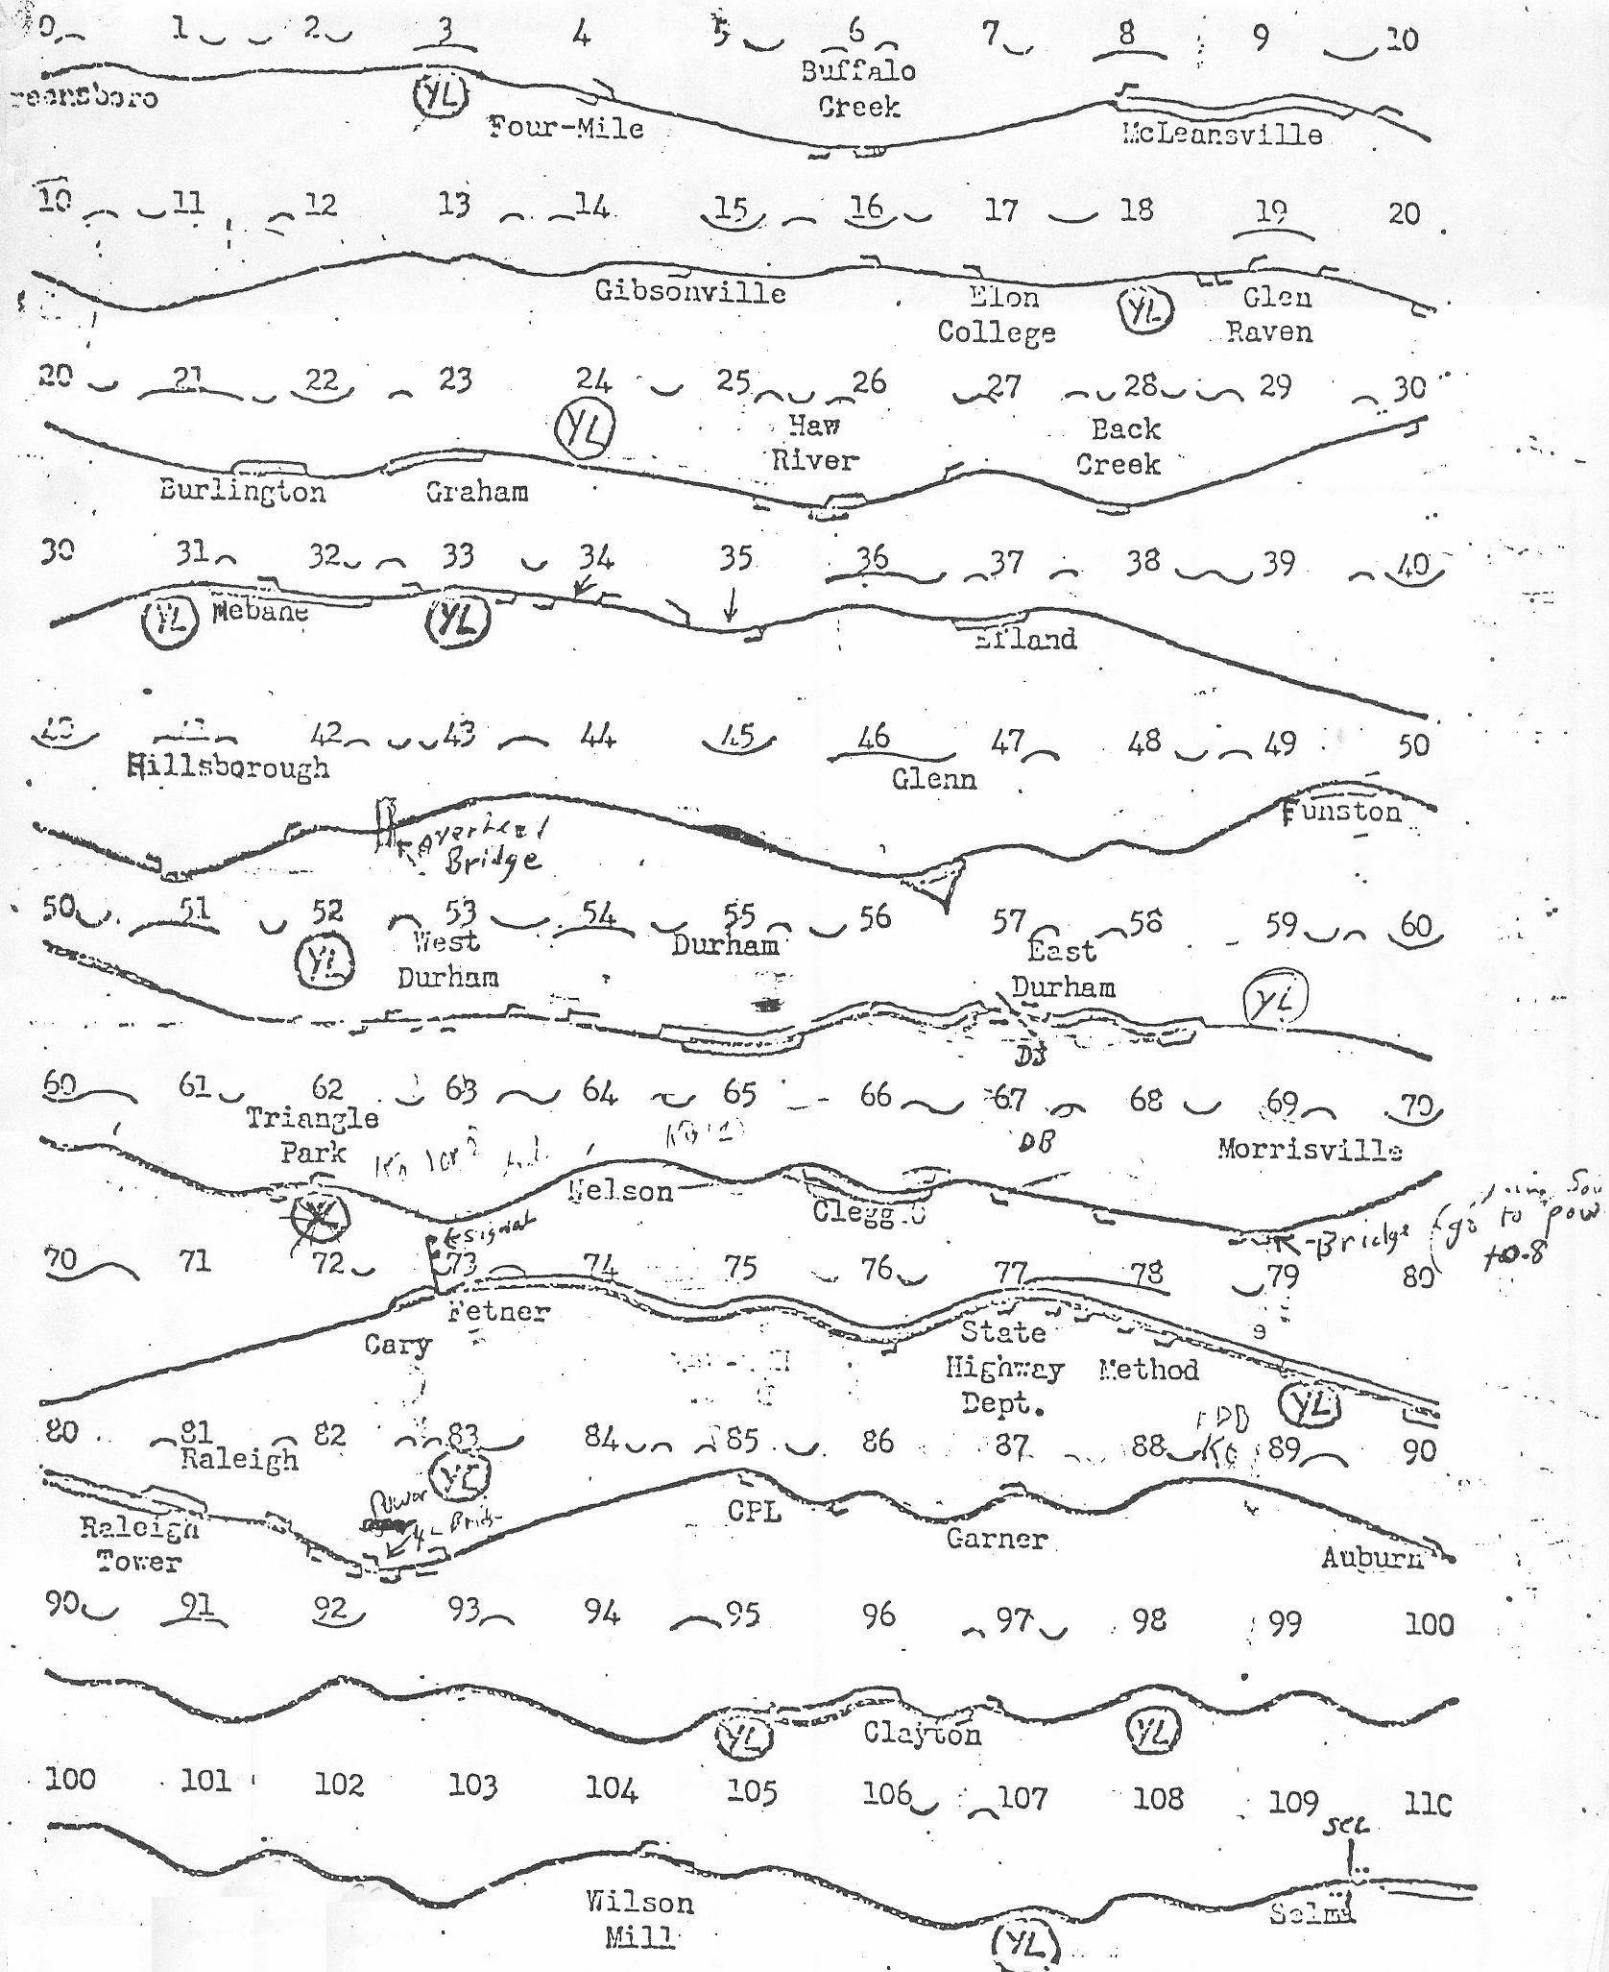 0 1 2 3 4 5 6 7 8 9 10
Buffalo
reensboro YL Creek
Four-Mile McLeansville
10 11 12 13 14 15 16 17 18 19 20
Gibsonville Elon YL Glen
College Raven
20 21 22 23 24 25 26 27 28 29 30
YL Haw Back
River Creek
Burlington Graham
30 31 32 33 34 35 36 37 38 39 40
YL Mebane YL
Efland
40 41 42 43 44 45 46 47 48 49 50
Hillsborough Glenn
Funston
Overhead
Bridge
50 51 52 53 54 55 56 57 58 59 60
YL West Durham East
Durham Durham YL
DJ
60 61 62 63 64 65 66 67 68 69 70
Triangle
Park DB Morrisville
Nelson
YL Clegg
signal Bridge
go to pow
to 8
70 71 72 73 74 75 76 77 78 79 80
Fetner
Cary State
Highway Method
Dept. YL
80 81 82 83 84 85 86 87 88 89 90
Raleigh YL
Power
Raleigh CPL Garner
Tower Auburn
90 91 92 93 94 95 96 97 98 99 100
YL Clayton YL
100 101 102 103 104 105 106 107 108 109 110
Wilson Selma
Mill YL